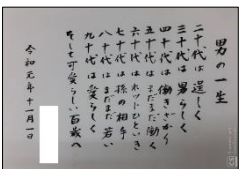 男の一生
二十代は逞しく
三十代は男らしく
四十代は働きざかり
五十代はまだまだ働く
六十代はホッとひといき
七十代は孫の相手
八十代はまだまだ若い
九十代は愛らしく
そして可愛らしい百歳へ
令和元年十一月一日